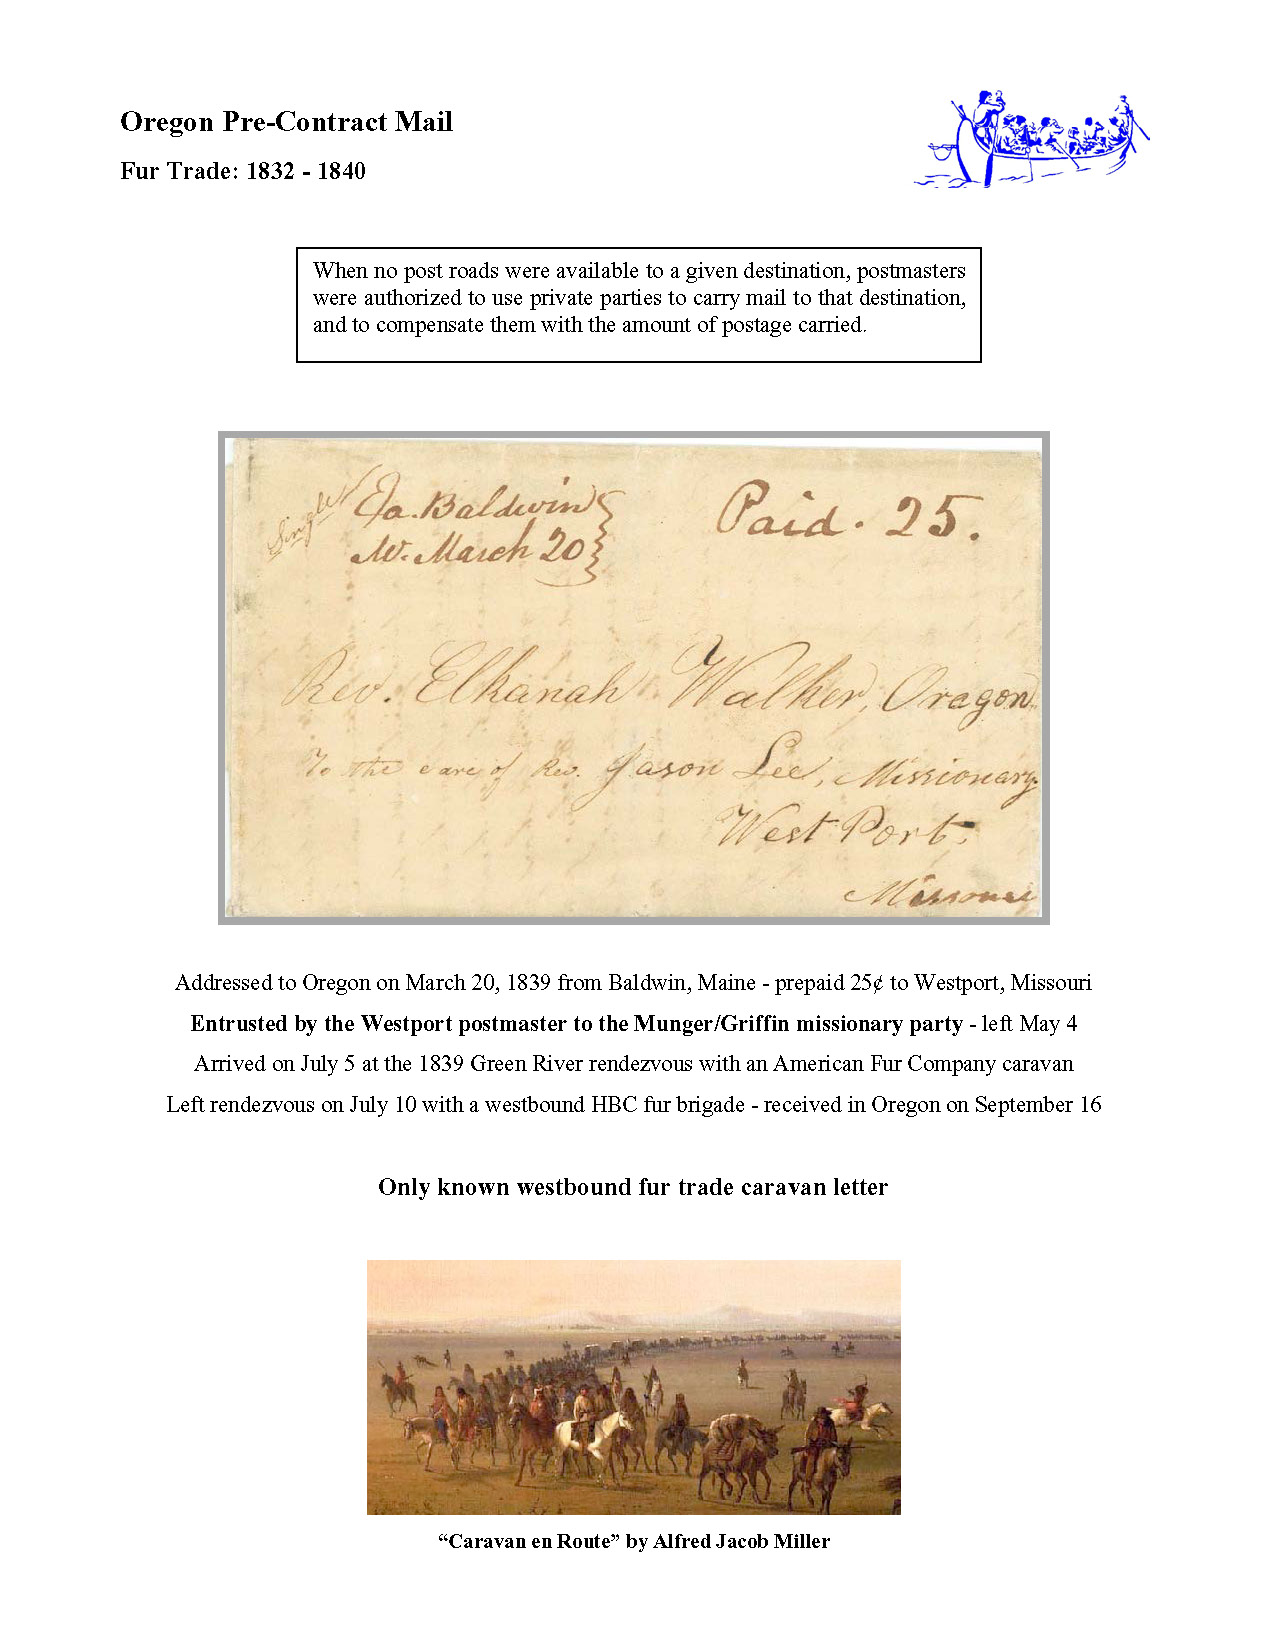 Oregon Pre-Contract Mail
Fur Trade: 1832 - 1840
When no post roads were available to a given destination, postmasters
were authorized to use private parties to carry mail to that destination,
and to compensate them with the amount of postage carried.
Single
Baldwin
March 20
Paid. 25.
Rev. Elkanah Walker, Oragon
To the care of Rev. Jason Lee, Missionary
West Port,
Missouri
Addressed to Oregon on March 20, 1839 from Baldwin, Maine - prepaid 25¢ to Westport, Missouri
Entrusted by the Westport postmaster to the Munger/Griffin missionary party - left May 4
Arrived on July 5 at the 1839 Green River rendezvous with an American Fur Company caravan
Left rendezvous on July 10 with a westbound HBC fur brigade - received in Oregon on September 16
Only known westbound fur trade caravan letter
“Caravan en Route” by Alfred Jacob Miller